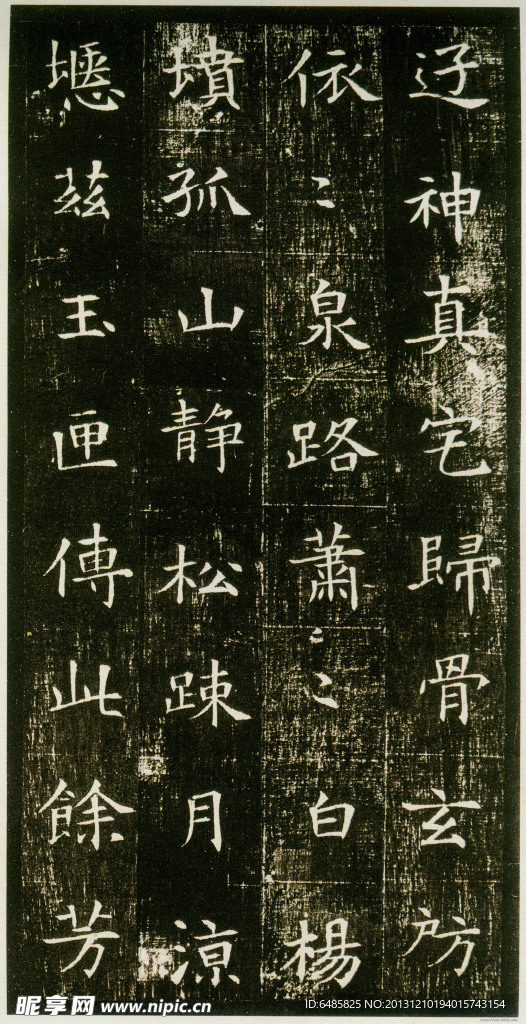 迁神真宅歸骨玄房
依々泉路蕭々白楊
墳孤山静松踈月涼
瘞茲玉匣傳此餘芳
昵享网 www.nipic.cn
ID:6485825 NO:20131210194015743154